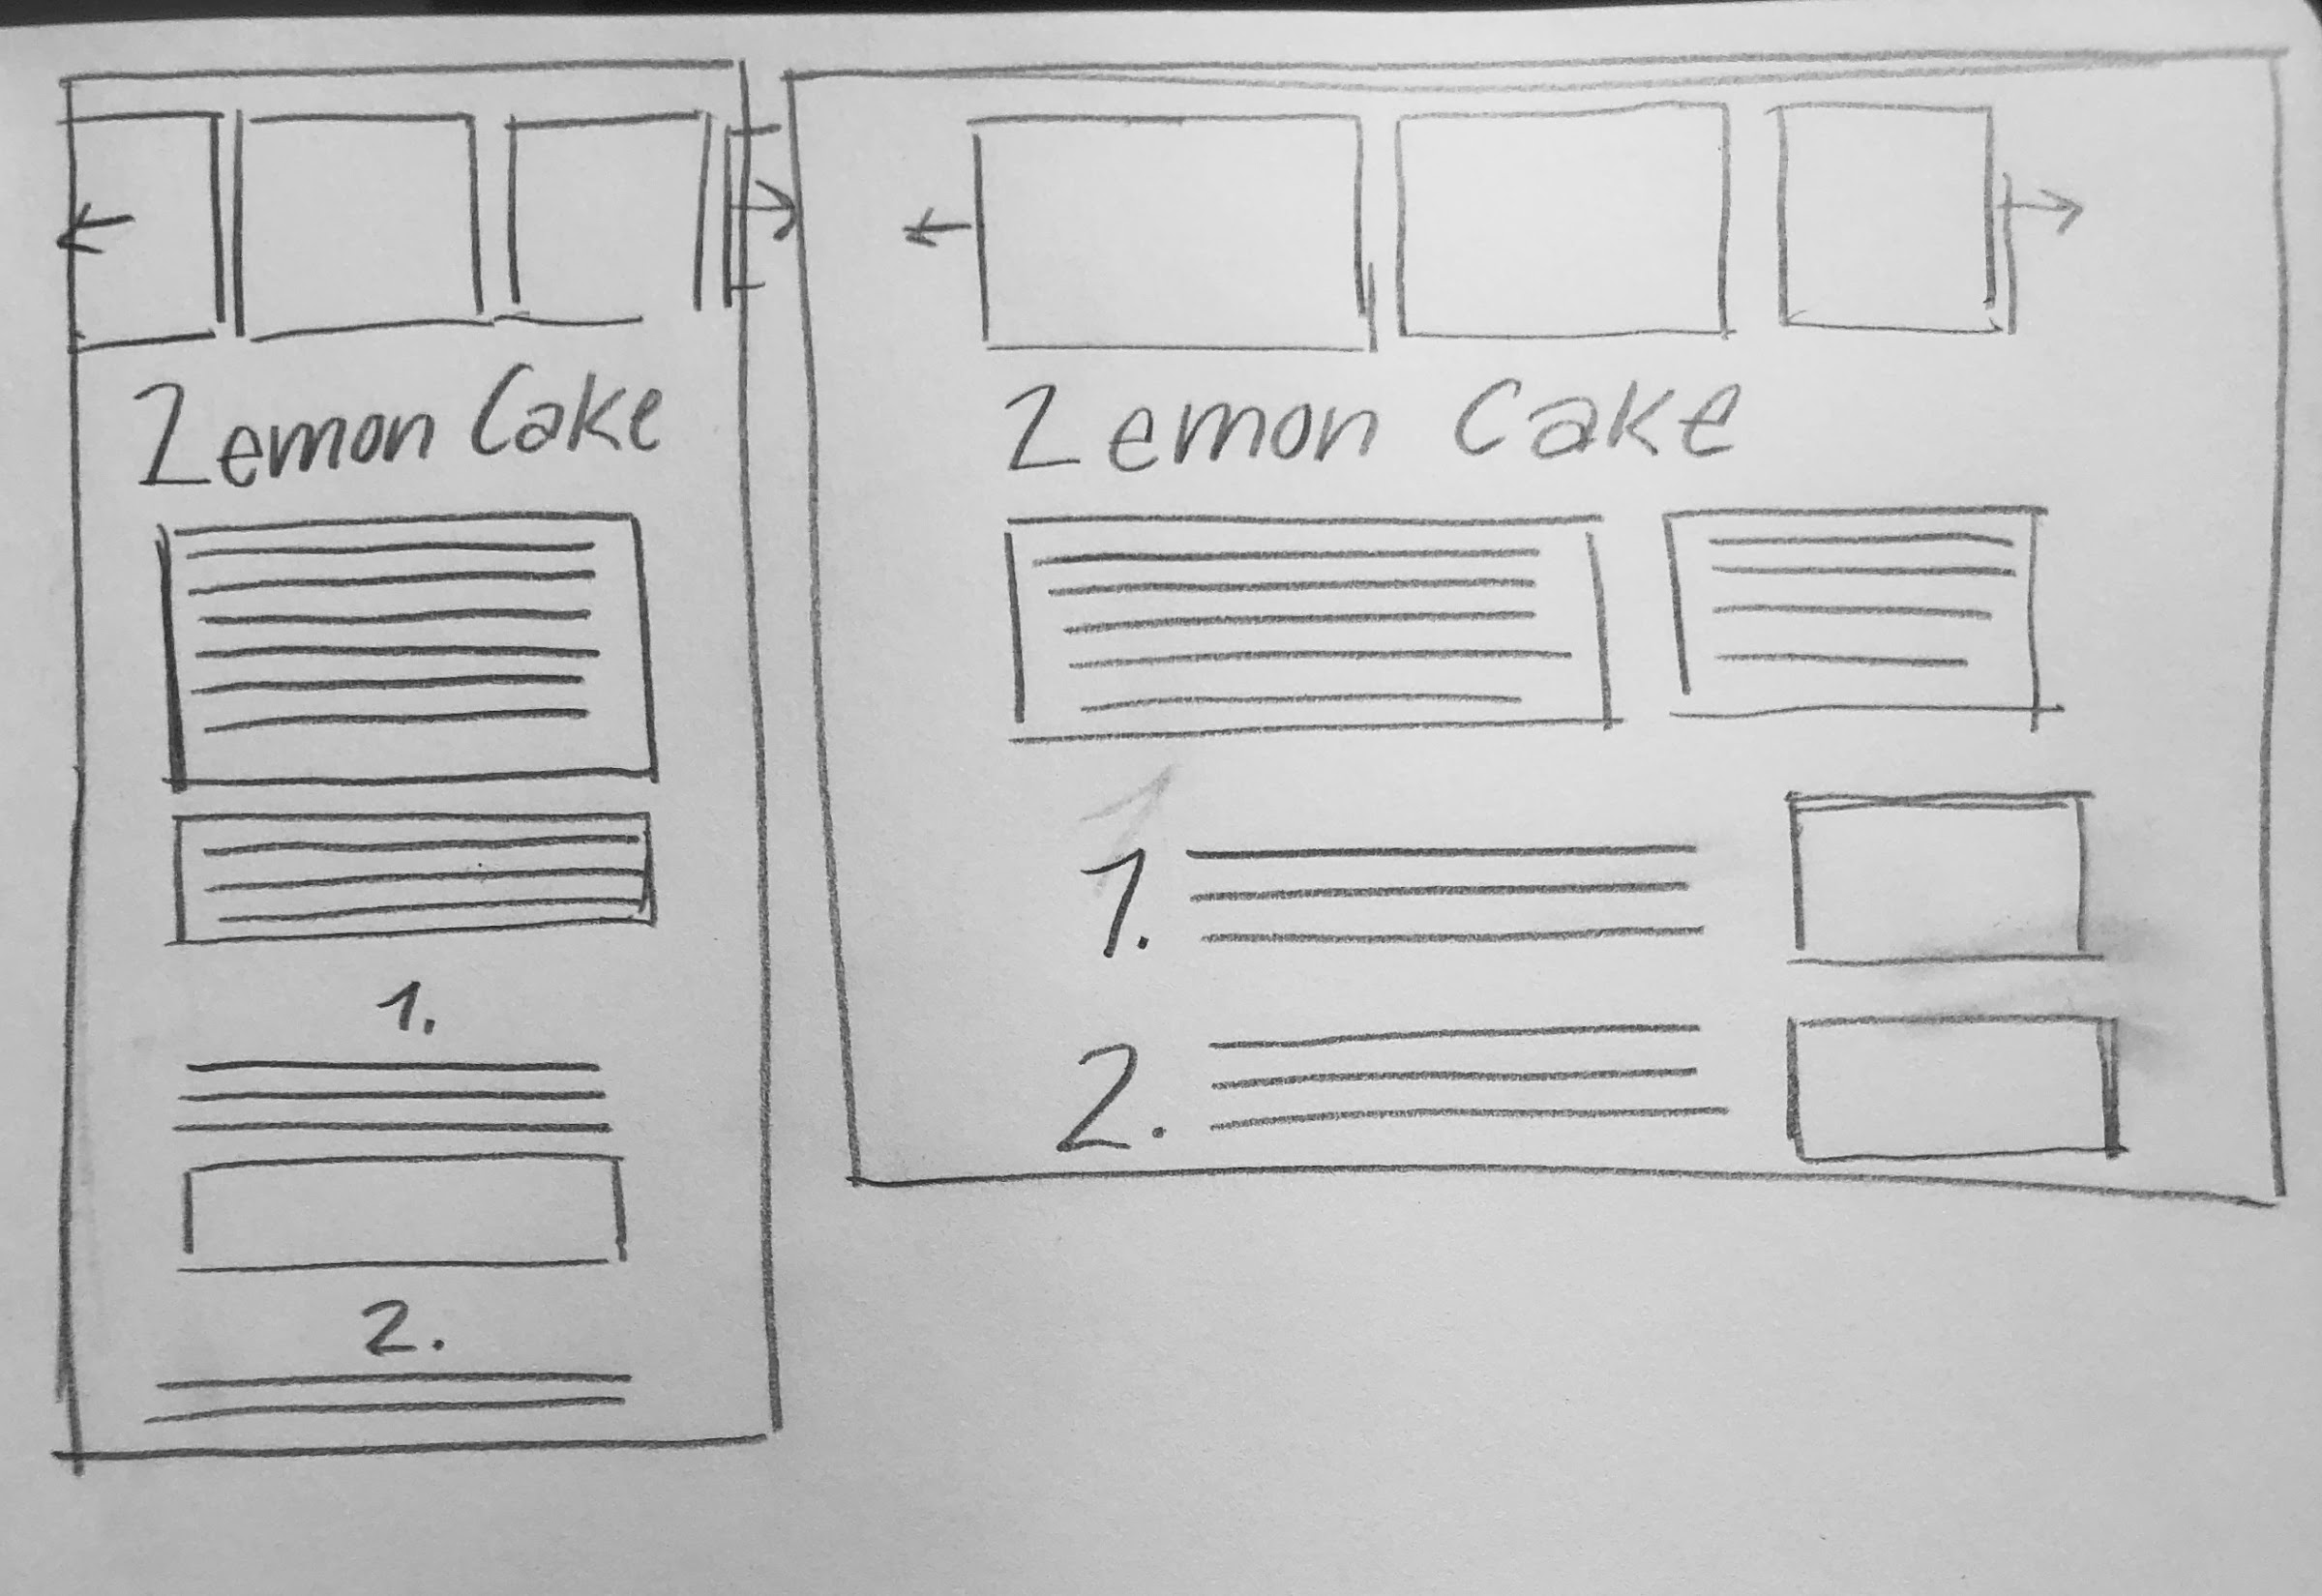 Lemon Cake
1.
2.
Lemon Cake
1.
2.